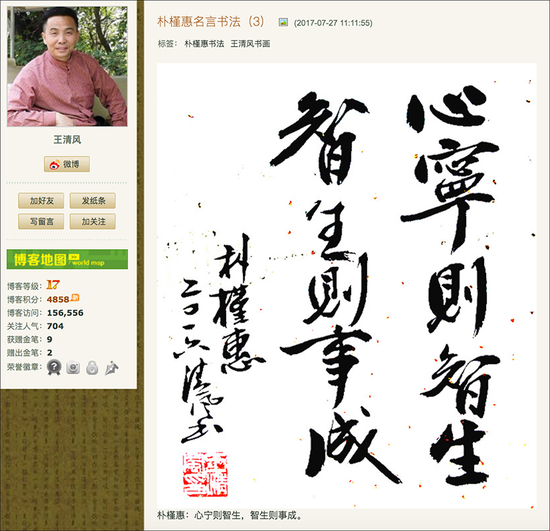 王清风
微博
加好友 发纸条
写留言 加关注
博客地图 world map
博客等级：17
博客积分：4858
博客访问：156,556
关注人气：704
获赠金笔：9
赠出金笔：2
荣誉徽章：
朴槿惠名言书法（3） (2017-07-27 11:11:55)
标签： 朴槿惠书法 王清风书画
心寧則智生
智生則事成
朴槿惠
二〇一六清风书
朴槿惠：心宁则智生，智生则事成。